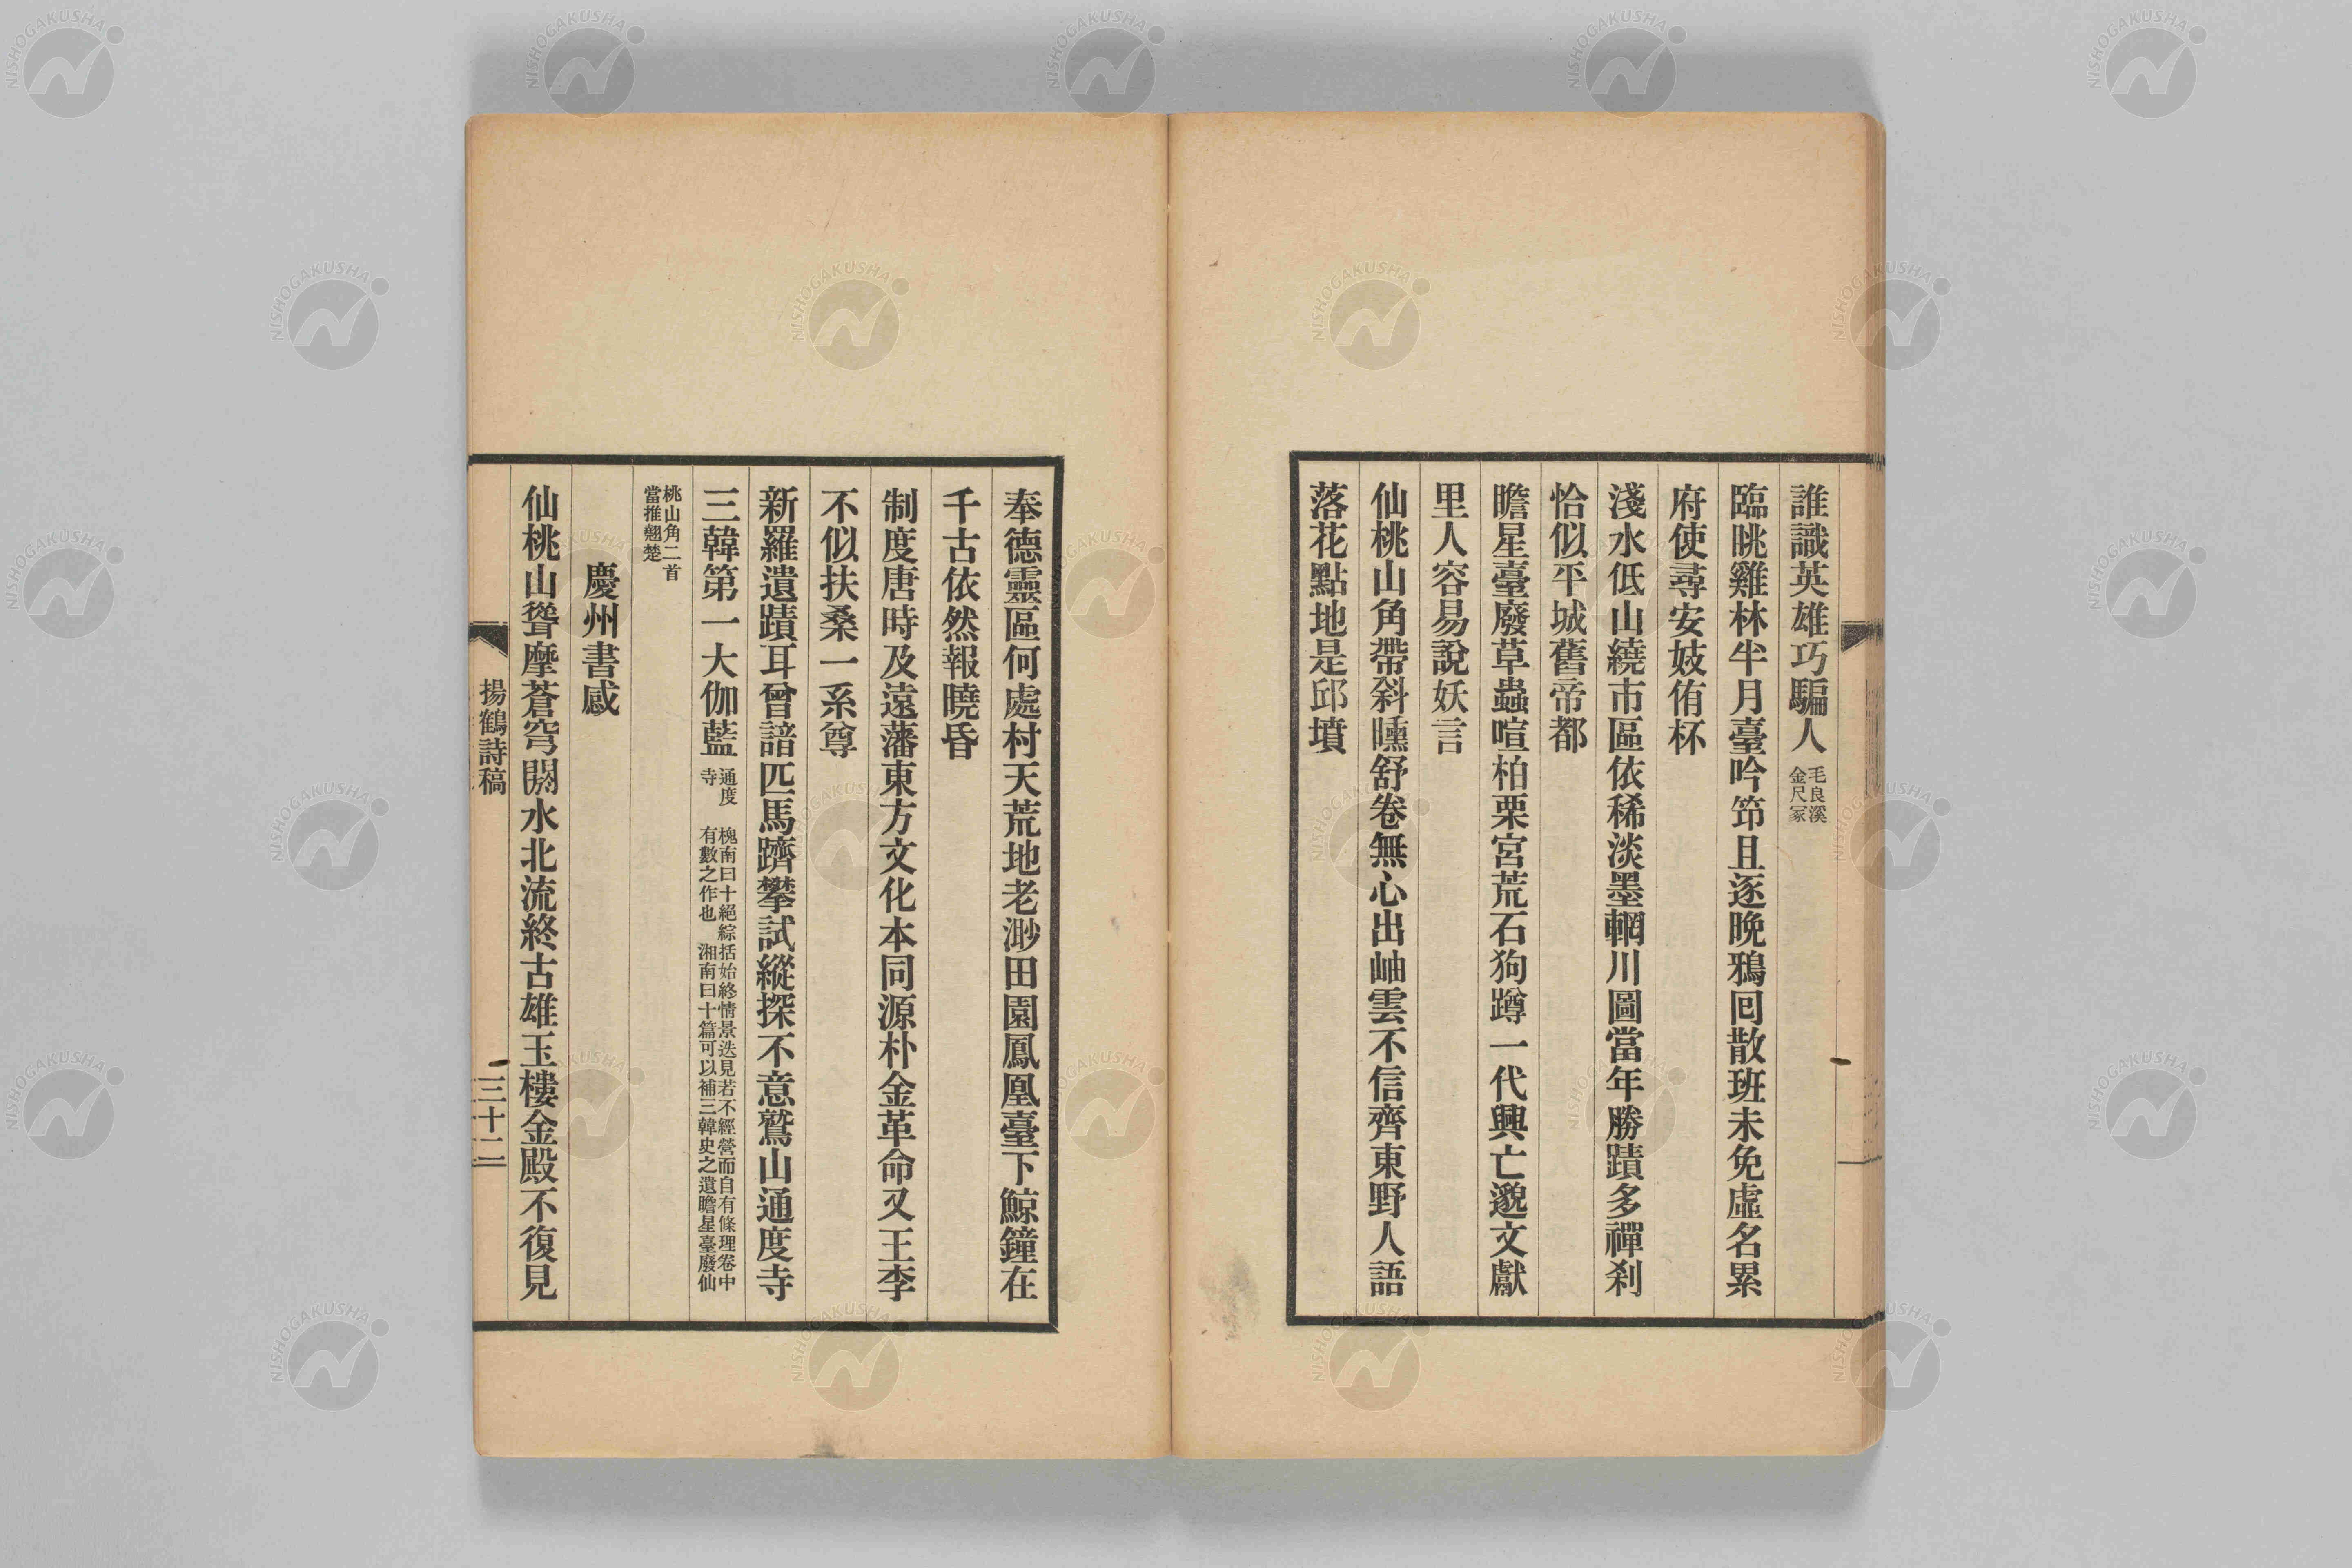 誰識英雄巧騙人 毛良溪金尺冢
臨眺雞林半月臺吟筇且逐晚鴉回散班未免虛名累
府使尋安妓侑杯
淺水低山繞市區依稀淡墨輞川圖當年勝蹟多禪刹
恰似平城舊帝都
瞻星臺廢草蟲喧柏栗宮荒石狗蹲一代興亡邈文獻
里人容易說妖言
仙桃山角帶斜曛舒卷無心出岫雲不信齊東野人語
落花點地是邱墳
奉德靈區何處村天荒地老渺田園鳳凰臺下鯨鐘在
千古依然報曉昏
制度唐時及遠藩東方文化本同源朴金革命又王李
不似扶桑一系尊
新羅遺蹟耳曾諳匹馬躋攀試縱探不意鷲山通度寺
三韓第一大伽藍 通度寺 槐南曰十絕綜括始終情景迭見若不經營而自有條理卷中有數之作也 湘南曰十篇可以補三韓史之遺瞻星臺廢仙
桃山角二首當推翹楚
慶州書感
仙桃山聳摩蒼穹閼水北流終古雄玉樓金殿不復見
揚鶴詩稿
三十二
NISHOGAKUSHA